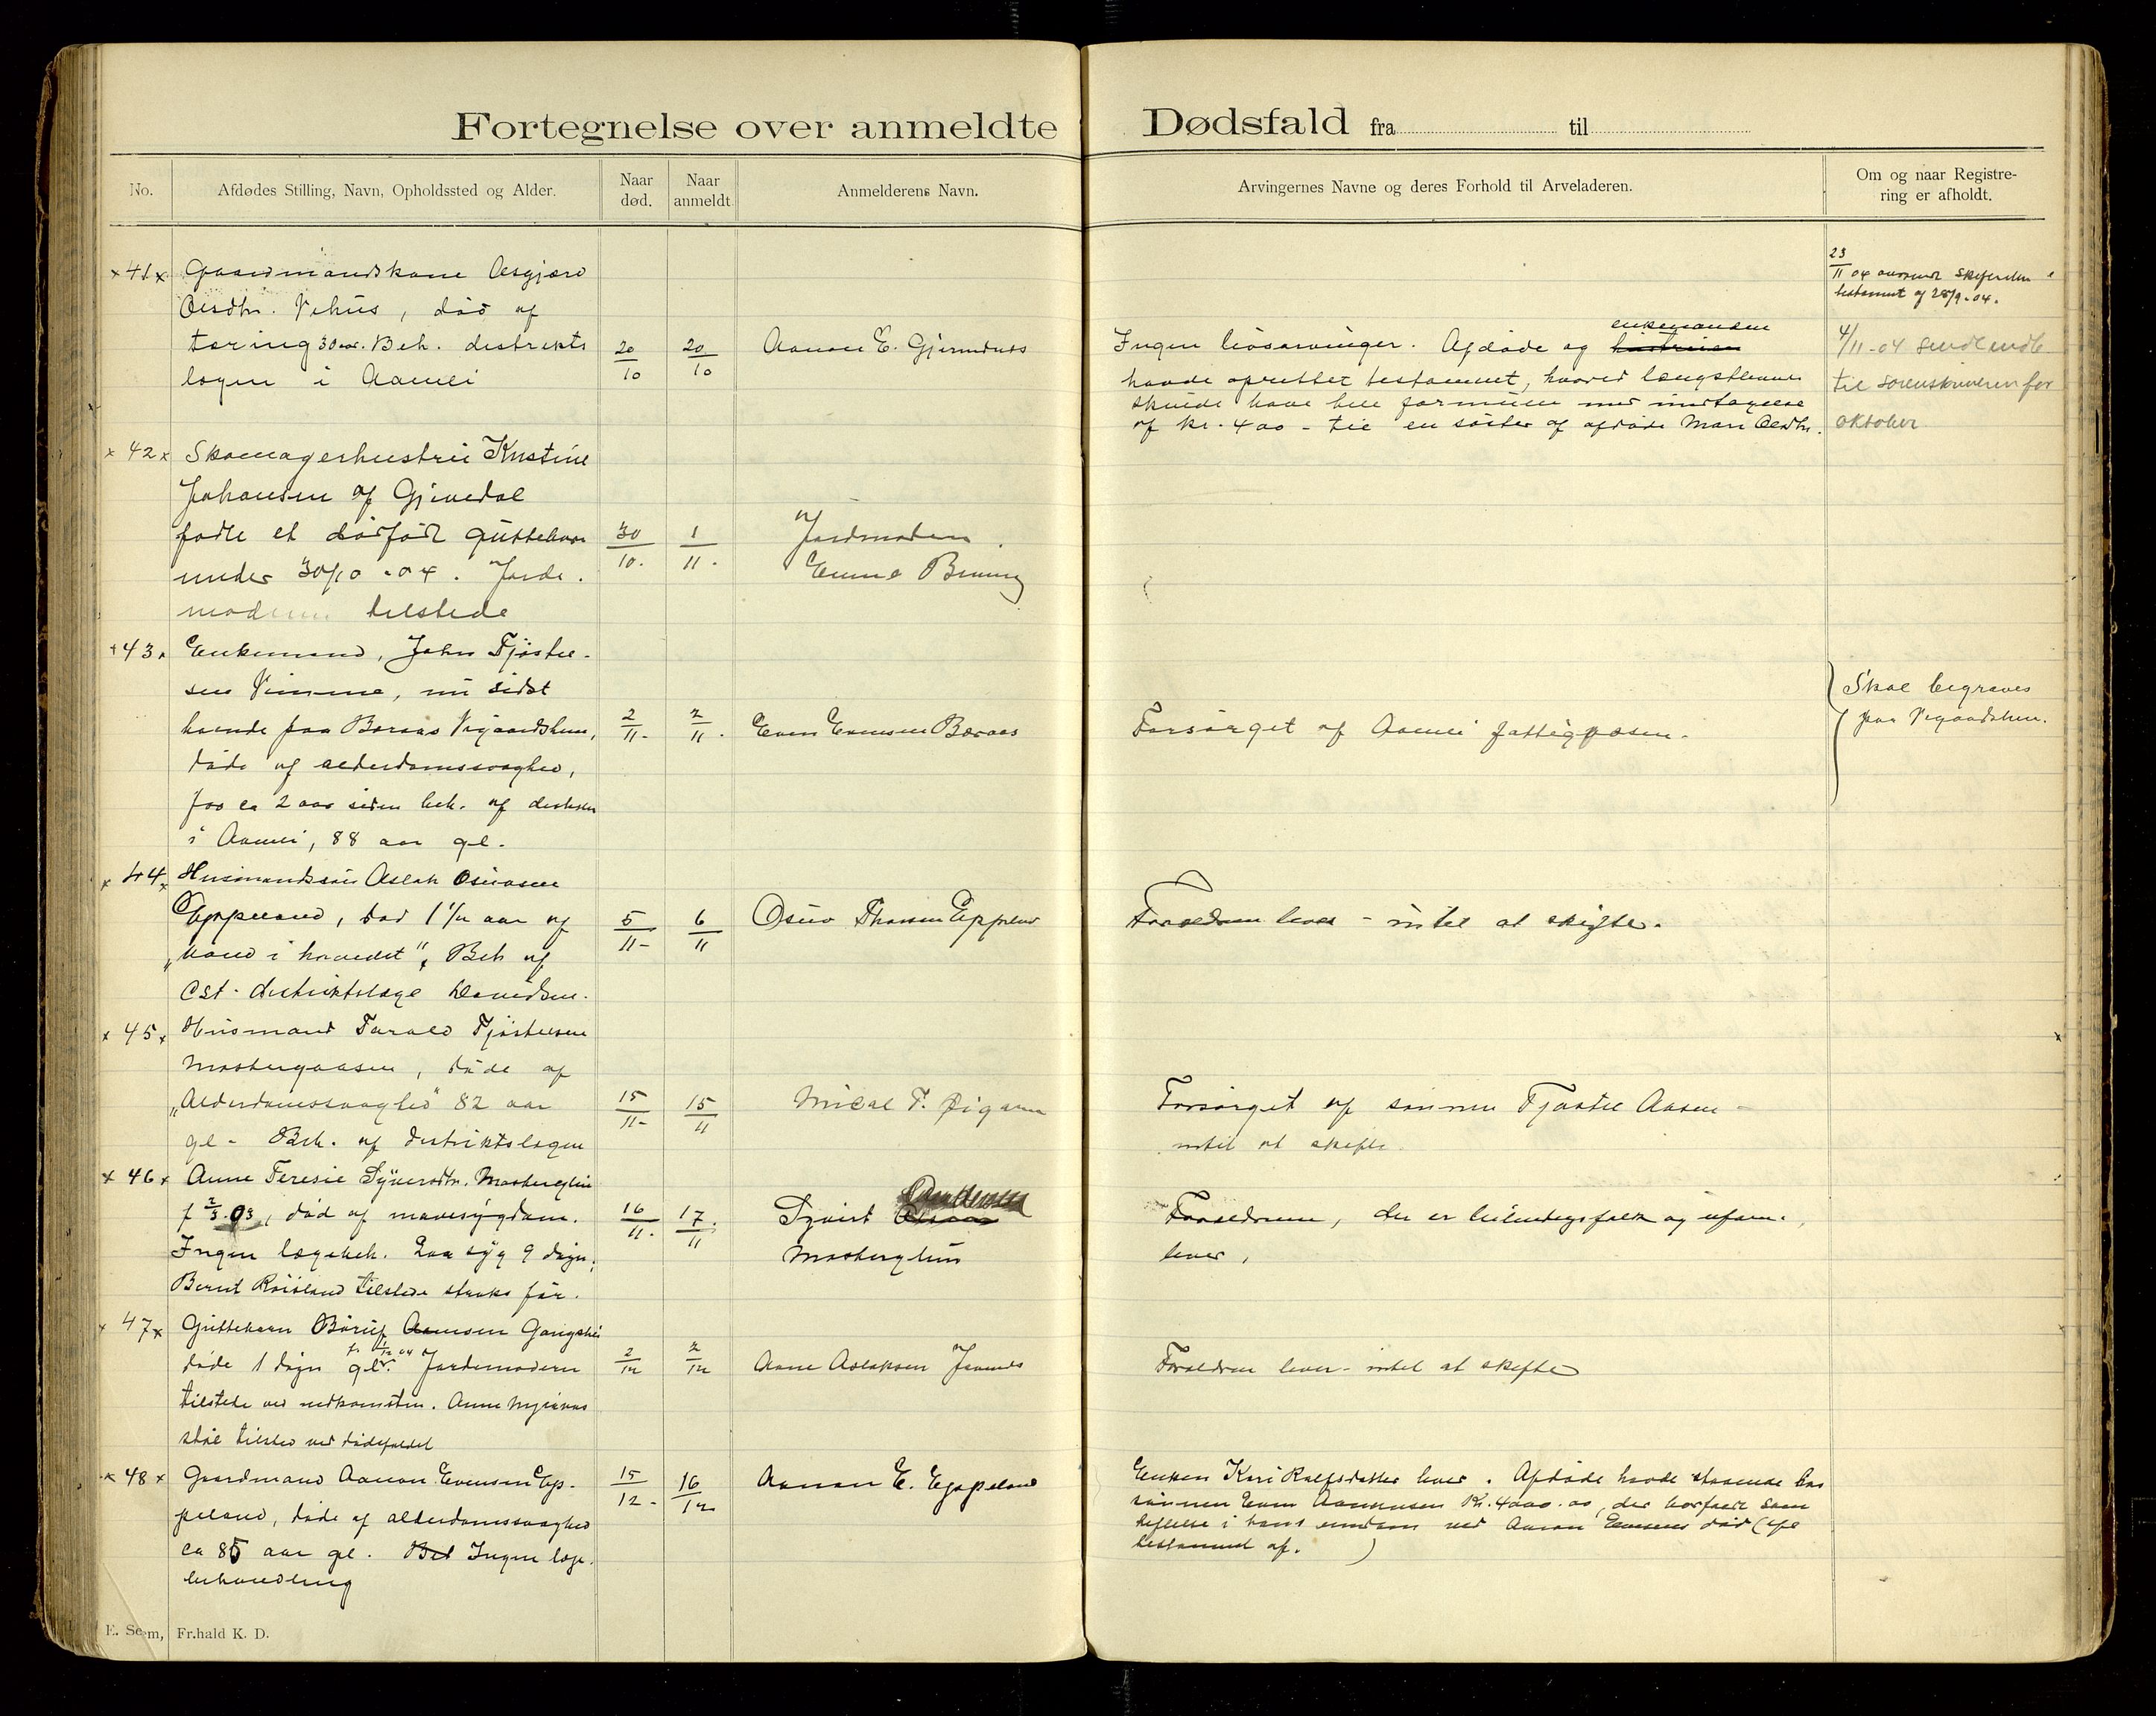 Fortegnelse over anmeldte Dødsfald fra til
No.
Afdødes Stilling, Navn, Opholdssted og Alder.
Naar død.
Naar anmeldt.
Anmelderens Navn.
Arvingernes Navne og deres Forhold til Arveladeren.
Om og naar Registre-
ring er afholdt.
41 Gaardmandskone Aasgjerd
Olsdtr. Vehus, død af
tæring 30 aar. Beh. distrikts
lægen i Aamli
20/10 20/10
Aanon E. Gjermundnes
Ingen livsarvinger. Afdøde og enkemanden
havde oprettet testament, hvorved længstlevende
skulde have hele formuen med undtagelse
af kr. 400 - til en søster af afdøde Mari Olsdtr.
23/11 04 skifteretten
testament af 28/9-04.
4/11-04 sendt
til sorenskriveren for
oktober
42 Skomagerhustru Kristine
Johansen af Gjivedal
fødte et dødfødt guttebarn
under 30/10-04. Jorde.
moderen tilstede
30/10. 1/11.
Jordmoderen
43 Enkemand, John Tjøstel-
sen Vimme, nu sidst
boende paa Boraas Vegaardshein,
døde af alderdomssvaghed,
for ca 2 aar siden beh. af
i Aamli, 88 aar gl.
2/11- 2/11.
Even Evensen Boraas
Forsørget af Aamli fattigvæsen.
Skal begraves
paa Vegaardshein.
44 Husmandssøn Aslak Osuvsen
Eppeland, død 1 1/12 aar af
„Vand i hovedet“, Beh af
cst. distriktslæge Davidsen.
5/11- 6/11
Osuv Thorsen Eppeland
Forældrene lever - intet at skifte.
45 Husmand Tarald Tjøstelsen
Mosbergaasen, døde af
„Alderdomssvaghed“ 82 aar
gl - Beh. af distriktslægen
15/11- 15/11
Mical T.
Forsørget af sønnen Tjøstel Aasen -
intet at skifte.
46 Anne Teresie Syvertsdtr. Mosberglien
f 2/3-03, død af mavesygdom.
Ingen lægebeh. Laa syg 9 døgn.
Bernt Røisland tilstede straks før.
16/11. 17/11.
Syvert
Mosberglien
Forældrene, der er leilendingsfolk og uform.
lever,
47 Guttebarn Børuf Aamsen Gangshei
f. 1/12 04
døde 1 døgn gl. Jordemoderen
tilstede ved nedkomsten. Anne
tilsted ved dødsfaldet
2/12 2/12
Anne Aslaksen
Forældrene lever - intet at skifte
48 Gaardmand Aanon Evensen Ep-
peland, døde af alderdomssvaghed
ca 85 aar gl. Beh Ingen læge-
behandling
15/12- 16/12
Aanon E. Eppeland
Enken Kari Rolfsdatter lever. Afdøde havde staaende hos
sønnen Even Aanonsen Kr. 4000.00, der bortfaldt som
heftelse i hans eiendom ved Aanon Evensens død (
testament af. )
E. Sem, Fr.hald K. D.